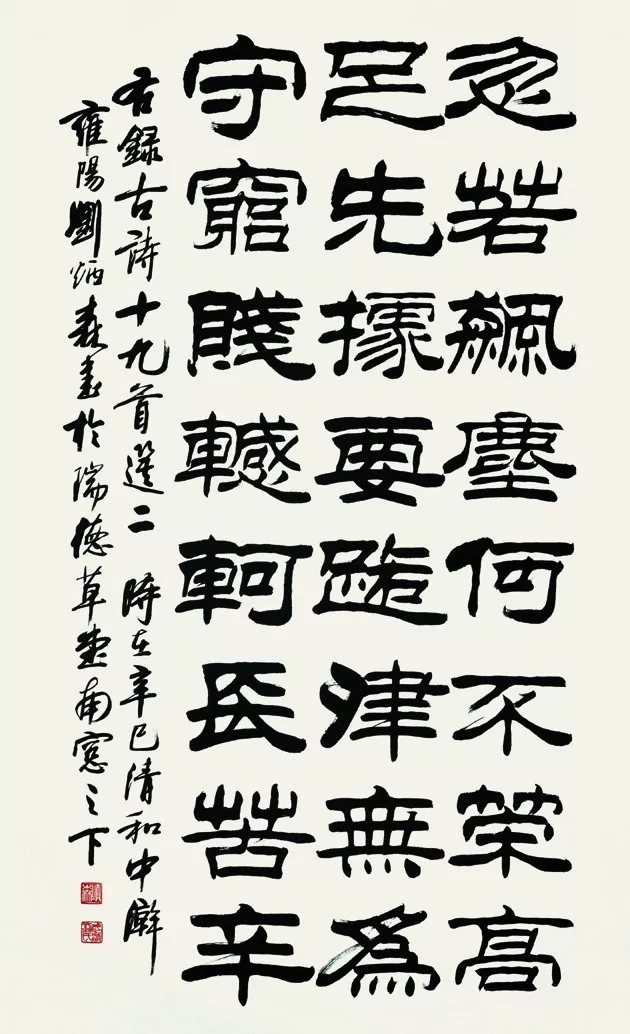 忽若飆塵何不策高
足先據要路津無為
守窮賤轗軻長苦辛
右録古詩十九首選二 時在辛巳清和中澣
雍陽劉炳森書於瑞德草堂南窓之下